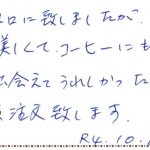 口に致しましたが
美しくて、コーヒーにも
出会えてうれしかった
注文致します。
R4.10.